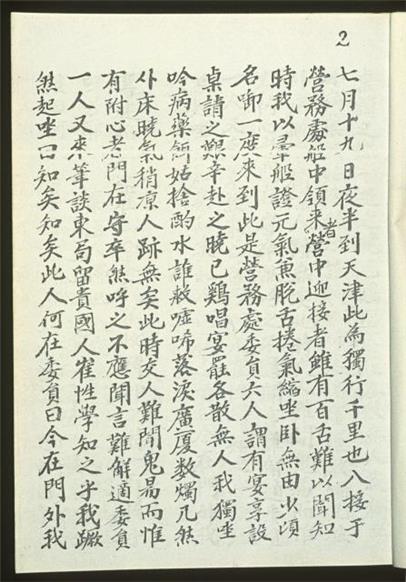 2
七月十九日夜半到天津此為獨行千里也入接于
營務處船中領来者營中迎接者雖有百舌難以聞知
時我以暈船證元氣魚脫舌捲氣縮坐卧無由少頃
名啣一度来到此是營務處委員六人謂有宴享設
桌請之艱辛赴之曉已鷄唱宴罷各散無人我獨坐
吟病藥餌姑捨酌水誰救噓唏落淚廣厦数燭几然
仆床曉氣稍凉人跡無矣此時交人難聞鬼易而惟
有附心老門在守卒然呼之不應聞言難解適委員
一人又来筆談東局留貴國人崔性學知之乎我蹶
然起坐曰知矣知矣此人何在委員曰今在門外我